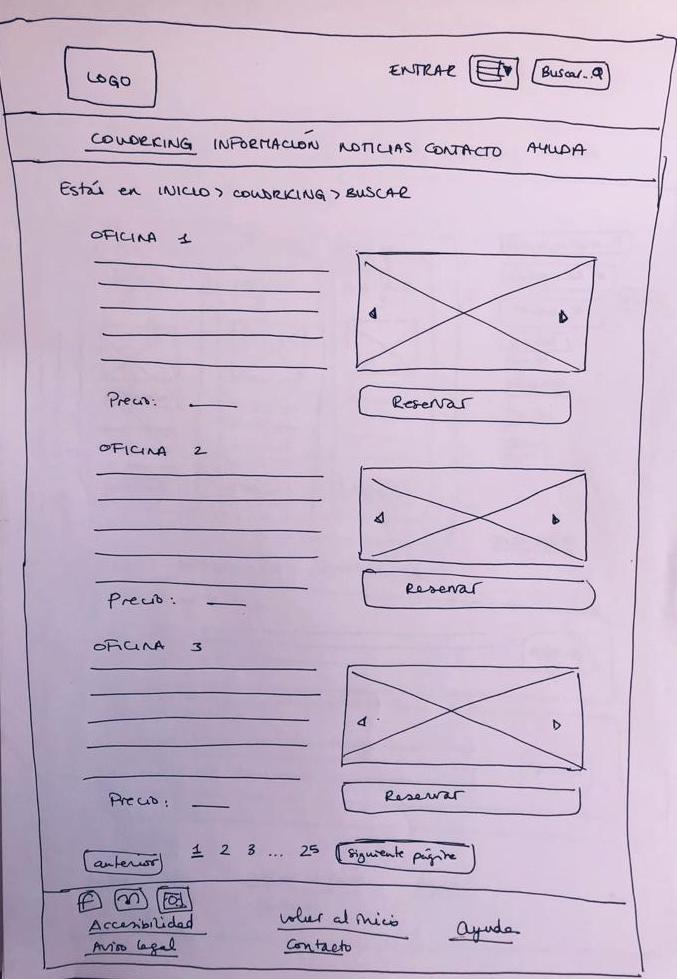 LOGO
ENTRAR
Buscar...
COWORKING INFORMACIÓN NOTICIAS CONTACTO AYUDA
Estás en INICIO > COWORKING > BUSCAR
OFICINA 1
Precio:
Reservar
OFICINA 2
Reservar
Precio:
OFICINA 3
Precio:
Reservar
anterior 1 2 3 ... 25 siguiente página
f
Accesibilidad volver al inicio Ayuda
Aviso legal Contacto